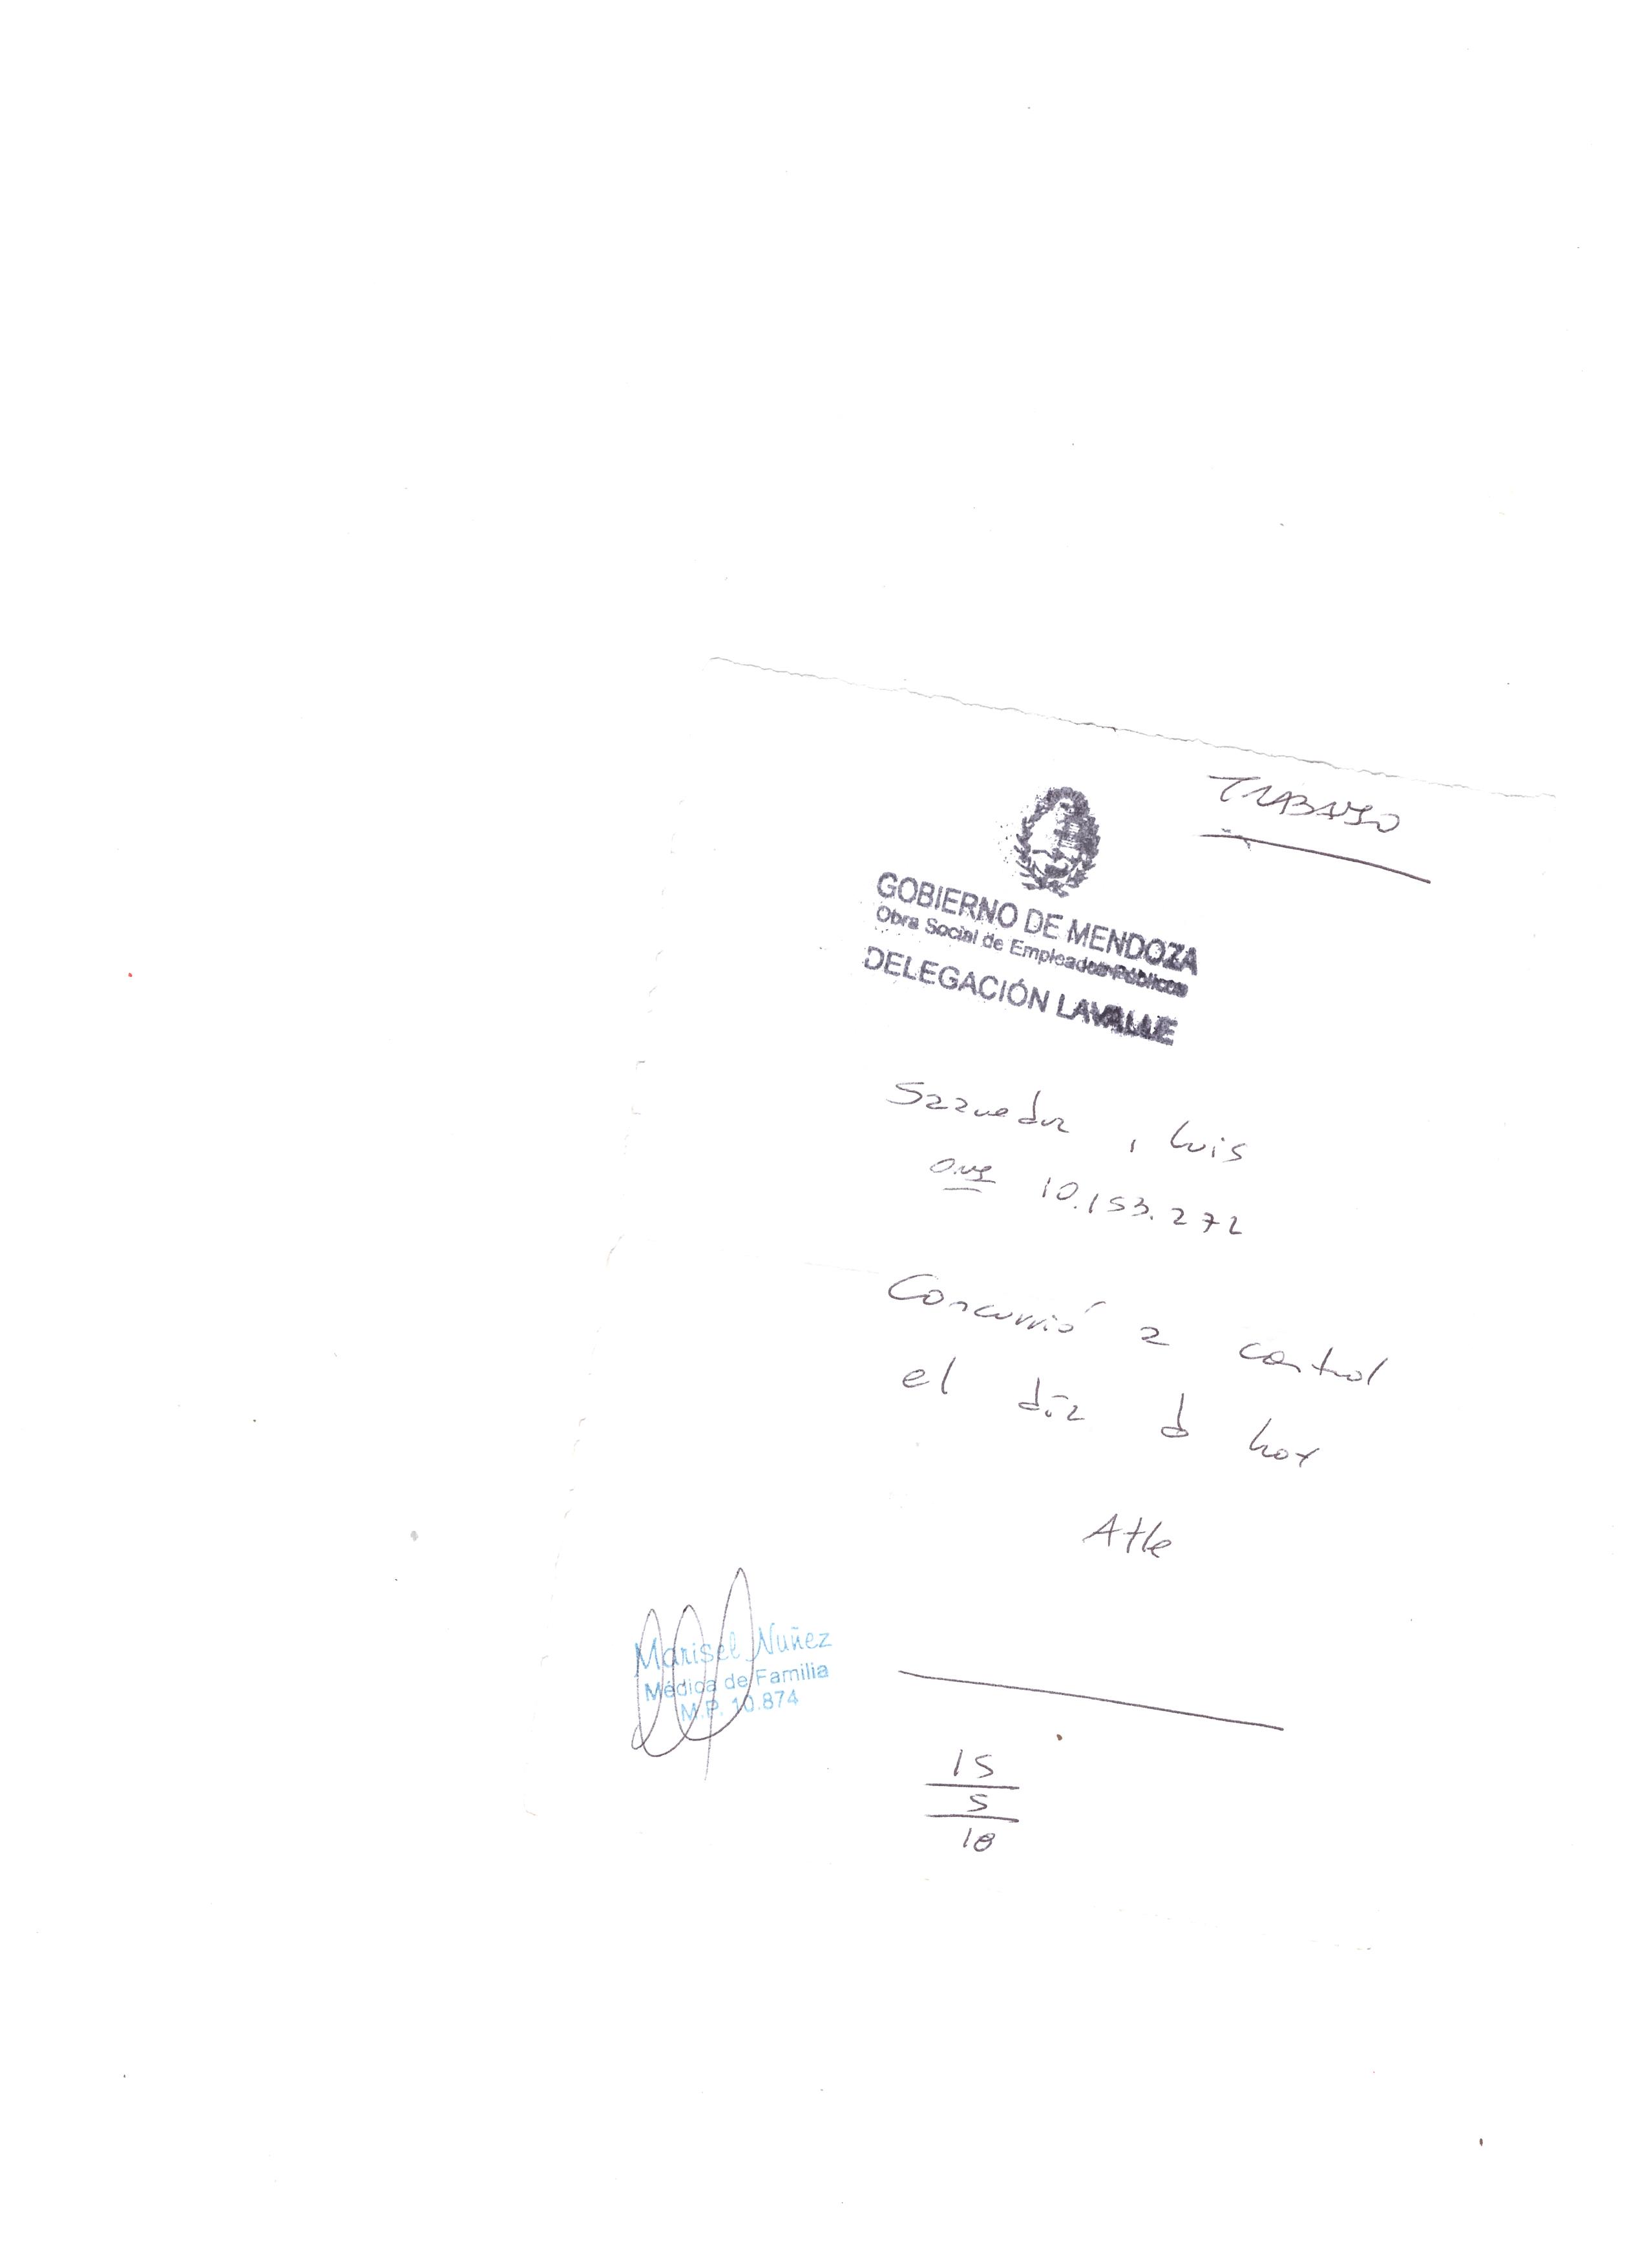 TRABAJO
GOBIERNO DE MENDOZA
Obra Social de Empleados Públicos
DELEGACIÓN LAVALLE
Saavedra, Luis
10.153.272
Concurrió a control
el día d hoy
Atte
Marisel Nuñez
Médica de Familia
M.P. 10.874
15
5
18